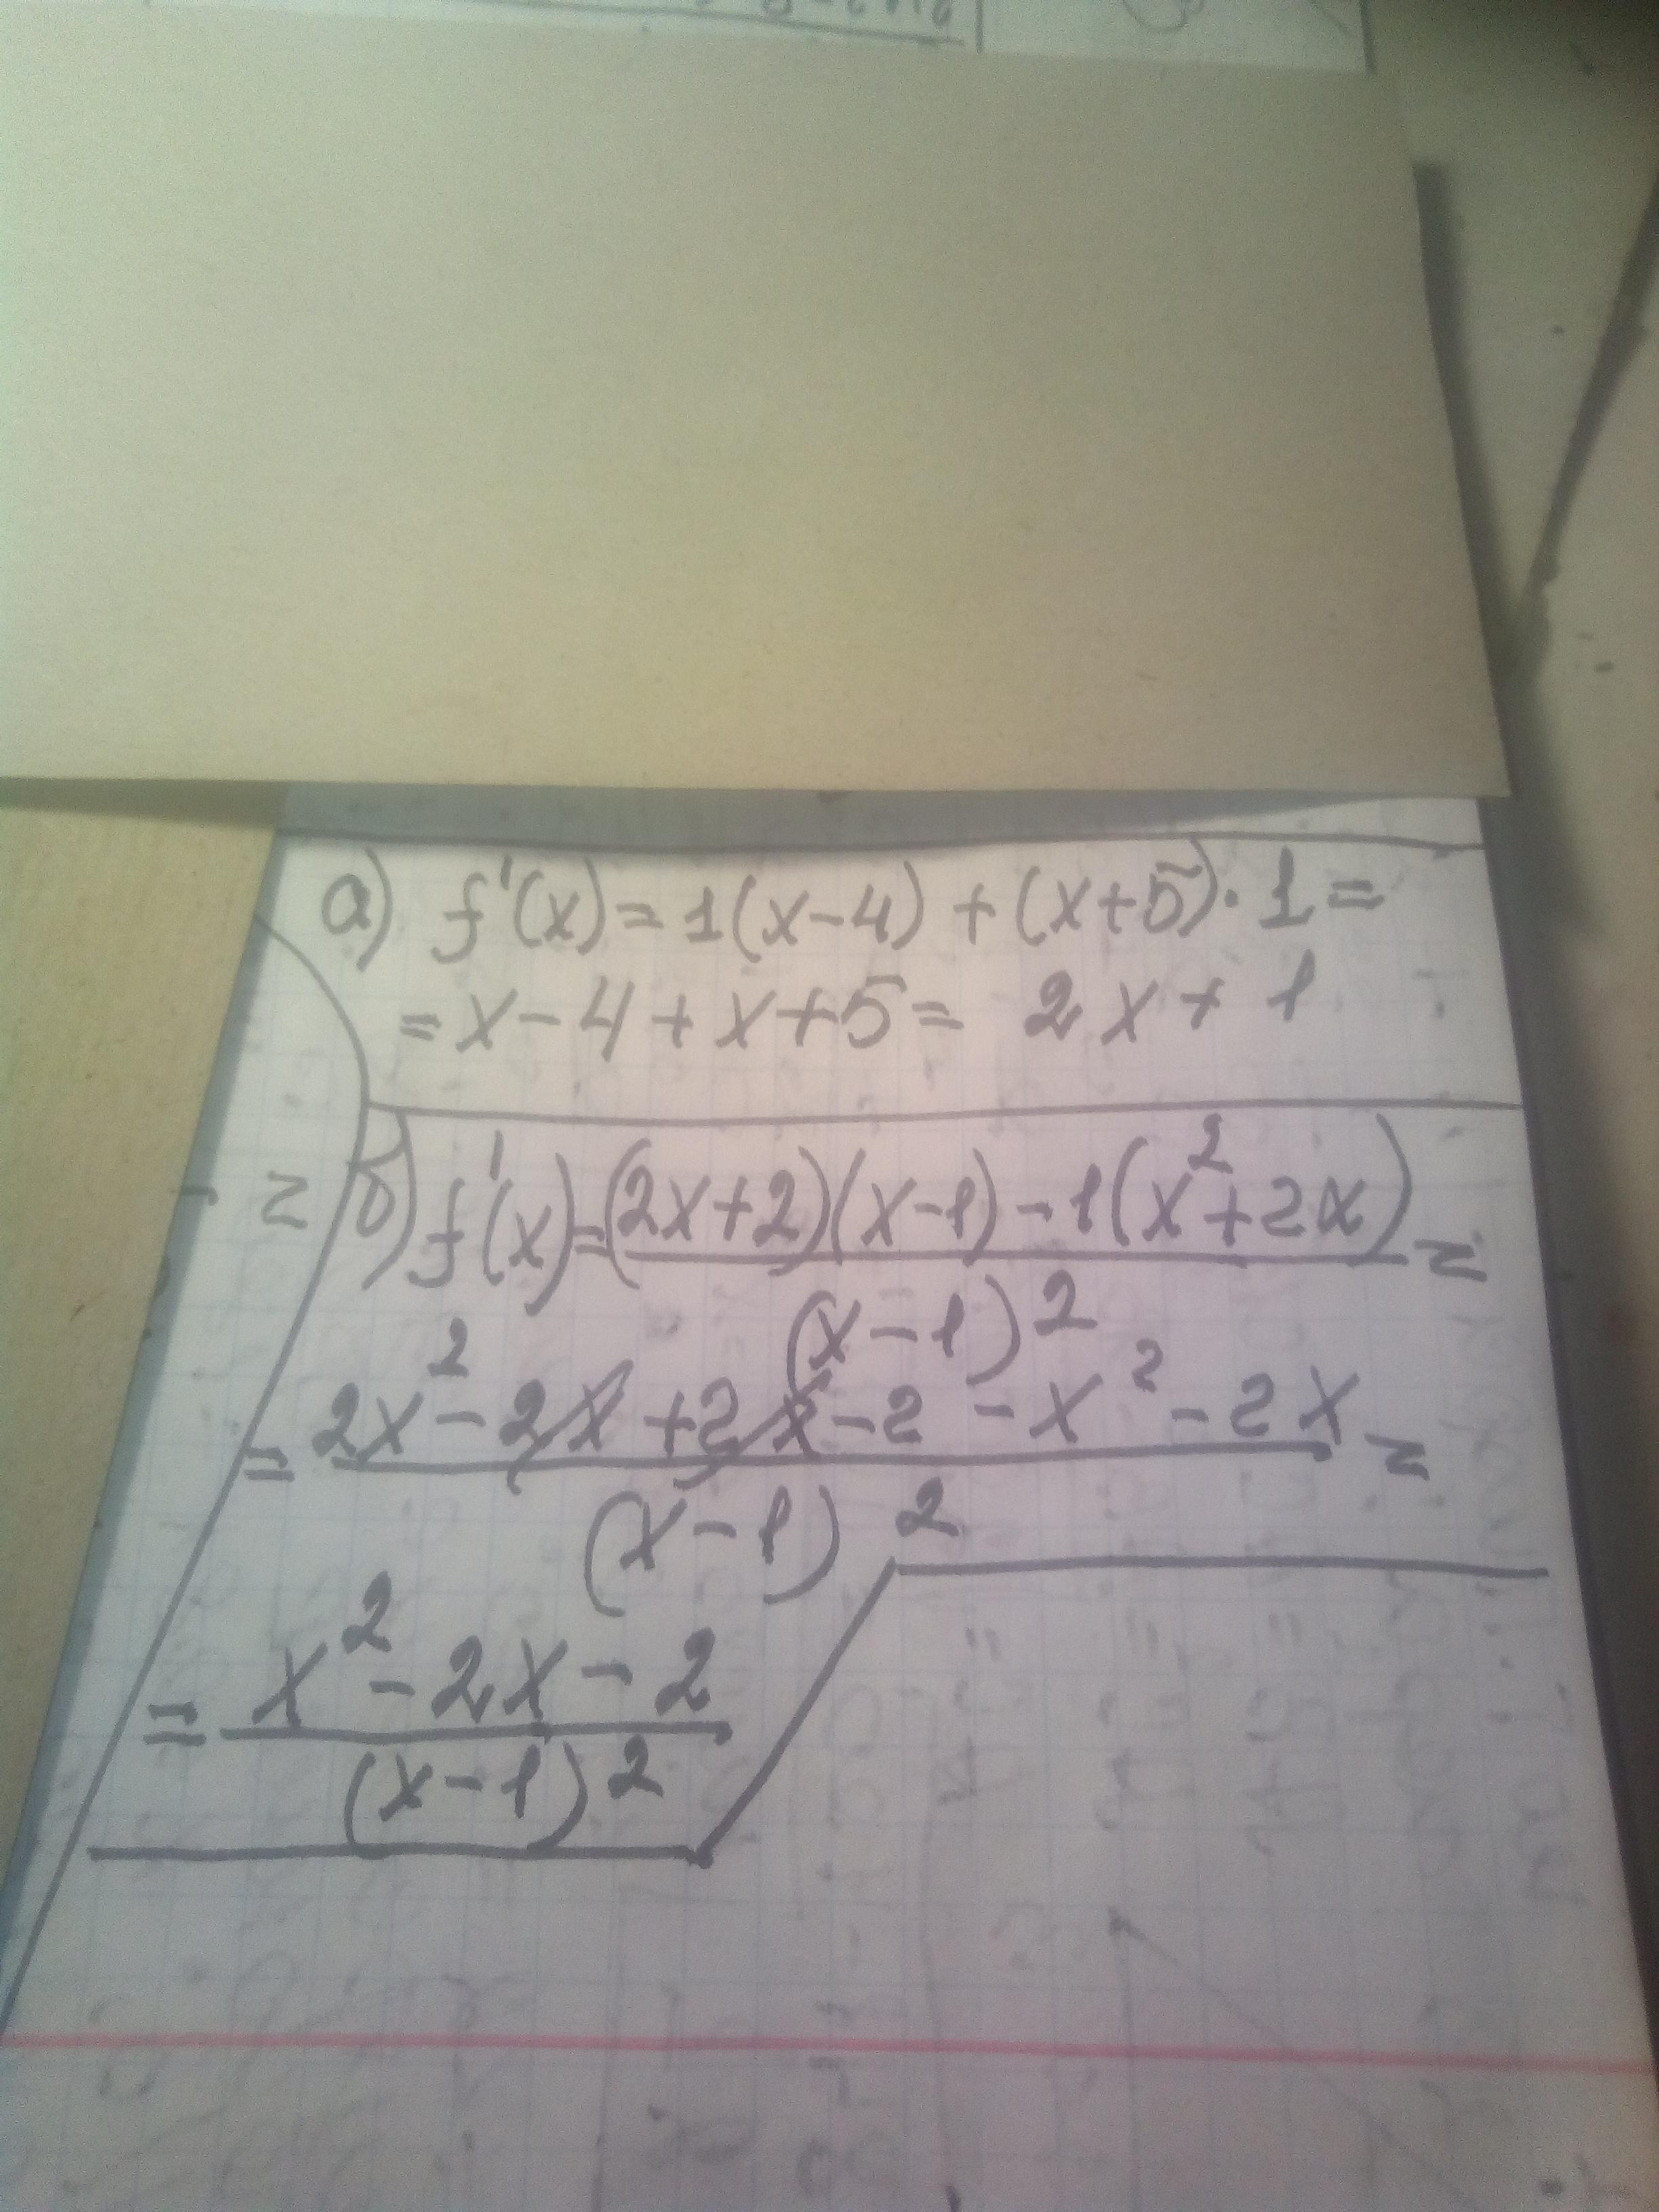 а) f'(x)=1(x-4)+(x+5)·1=
=x-4+x+5= 2x+1
б) f'(x)=(2x+2)(x-1)-1(x²+2x)=
(x-1)²
=2x²-2x+2x-2-x²-2x=
(x-1)²
=x²-2x-2
(x-1)²